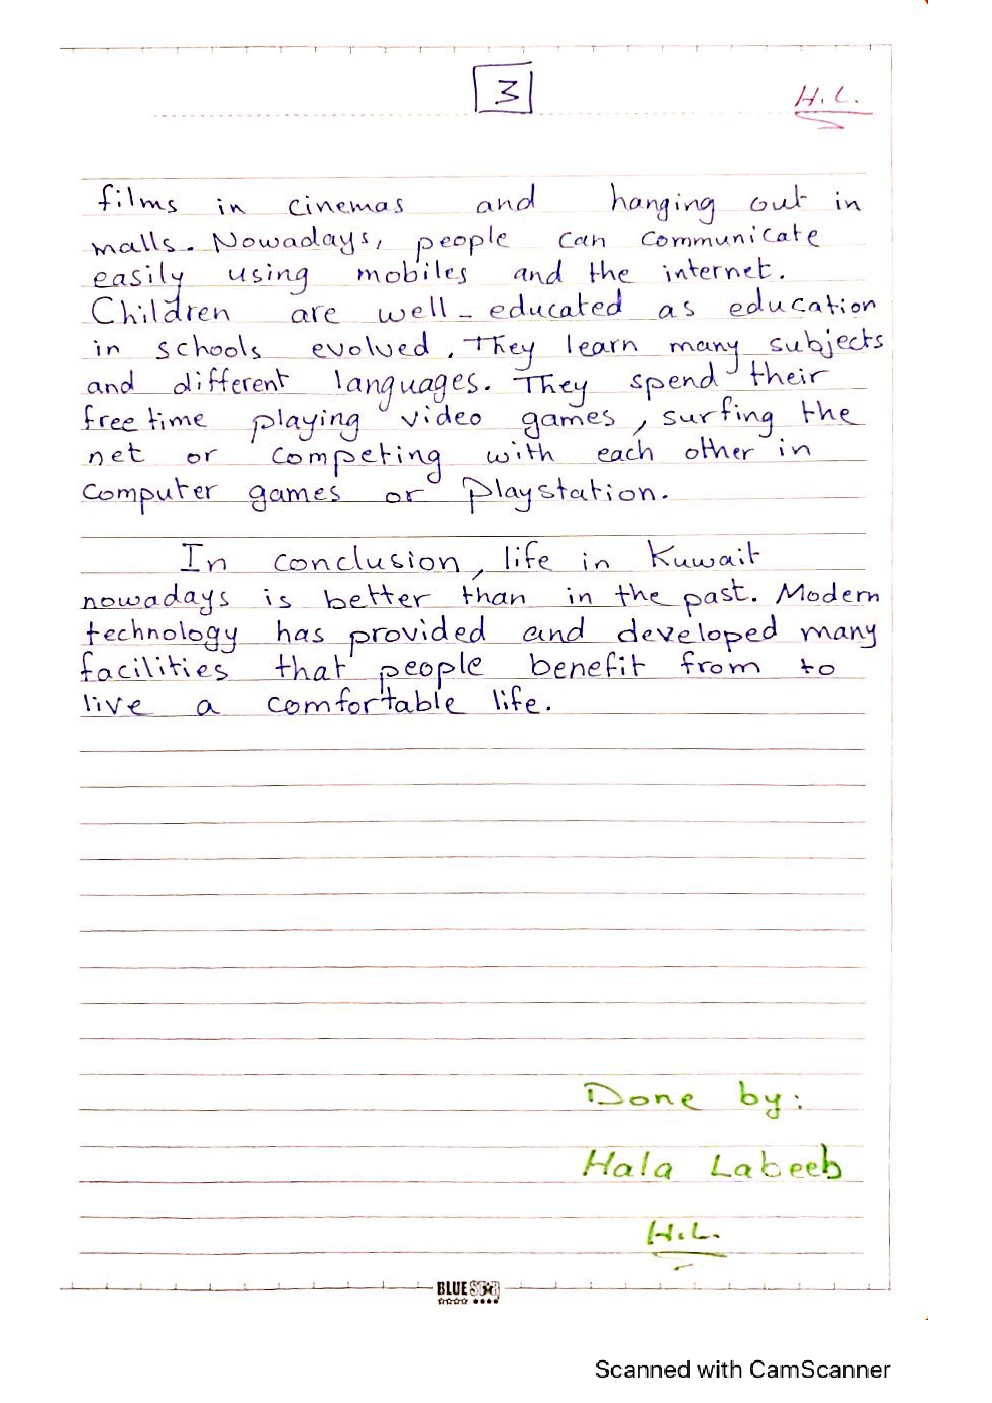 3
H.L.
films in cinemas and hanging out in
malls. Nowadays, people can communicate
easily using mobiles and the internet.
Children are well-educated as education
in schools evolved. They learn many subjects
and different languages. They spend their
free time playing video games, surfing the
net or competing with each other in
computer games or Playstation.
In conclusion, life in Kuwait
nowadays is better than in the past. Modern
technology has provided and developed many
facilities that people benefit from to
live a comfortable life.
Done by:
Hala Labeeb
H.L.
BLUE STAR
Scanned with CamScanner